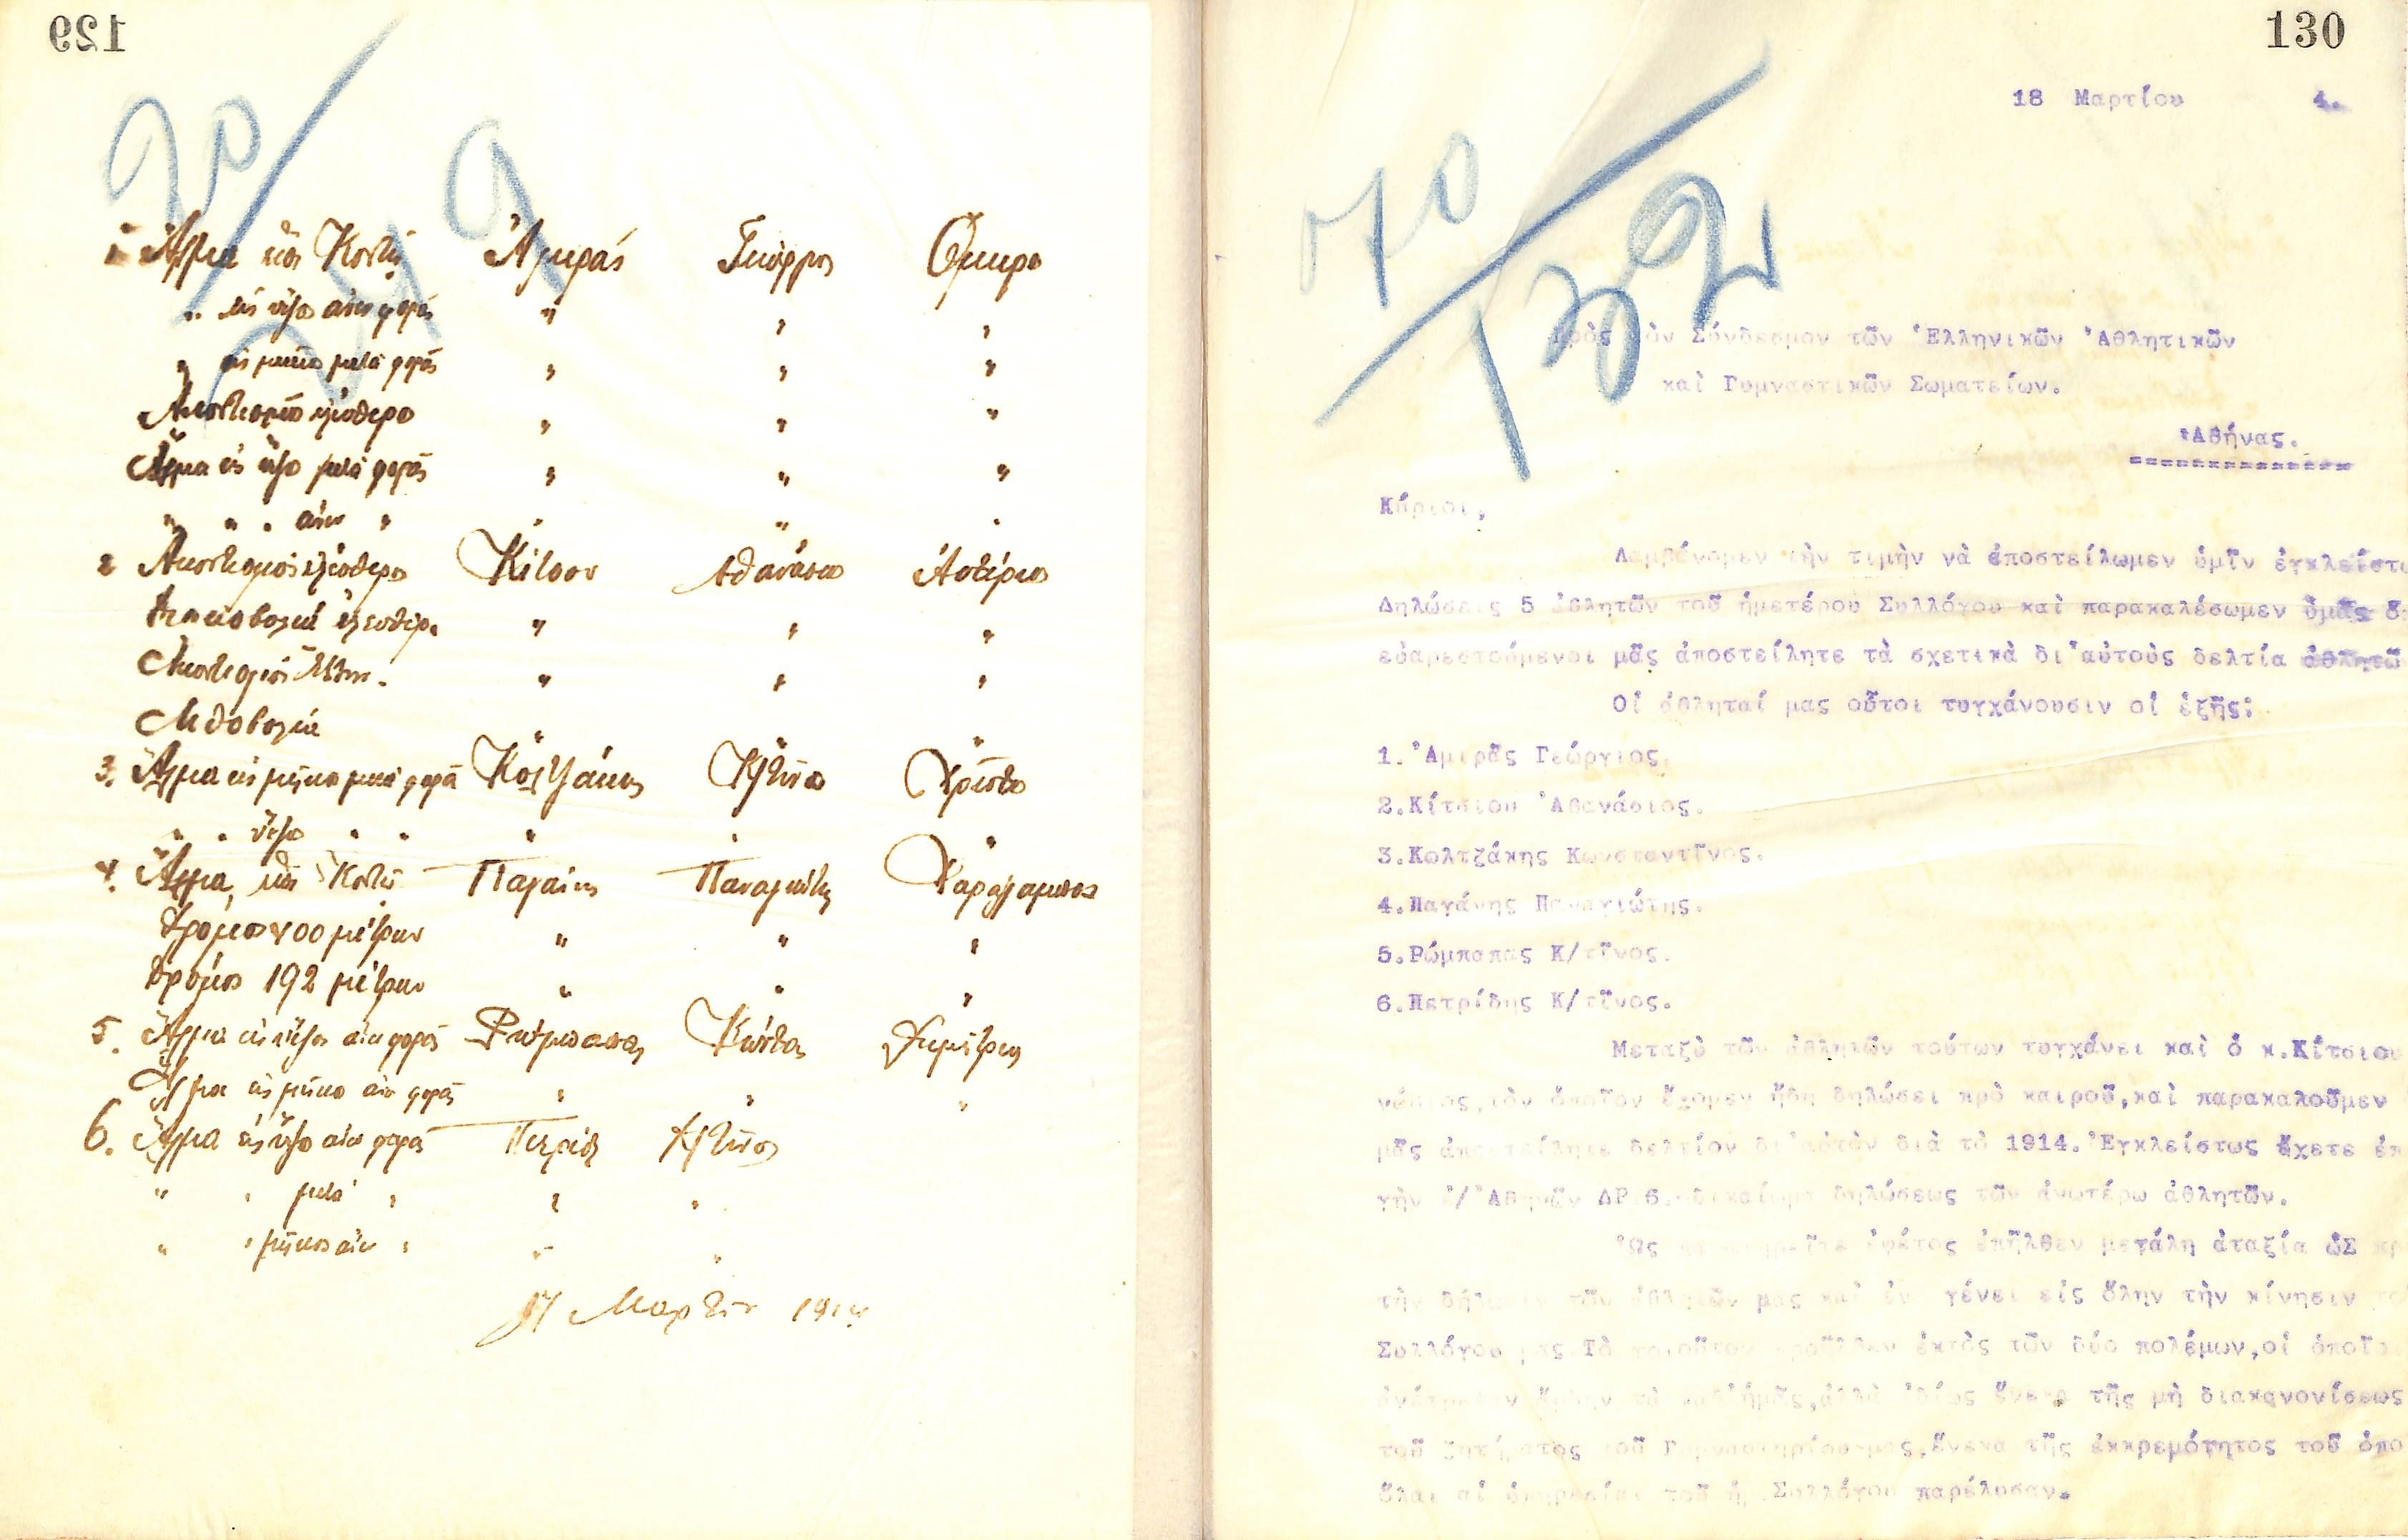 129
1 Ἅλμα ἐπὶ Κοντῷ Ἀμιρᾶς Γεώργιος Ὅμηρο
" εἰς ὕψο ἄνευ φορᾶς " " "
" εἰς μῆκο μετὰ φορᾶς " " "
Ἀκοντισμὸ ἐλεύθερο " " "
Ἅλμα εἰς ὕψο μετὰ φορᾶς " " "
" " " ἄνευ " " " "
2 Ἀκοντισμὸς ἐλεύθερος Κίτσου Ἀθανάσιο Ἀστέριο
Δισκοβολία ἐλευθέρα " " "
Ἀκοντισμὸς Ἑλλην. " " "
Λιθοβολία " " "
3. Ἅλμα εἰς μῆκο μετὰ φορᾶ Κολτζάκης Κ/τῖνο Χρῆστο
" " ὕψο " " " " "
4. Ἅλμα ἐπὶ Κοντῷ Παγάνης Παναγιώτης Χαράλαμπος
Δρόμος 400 μέτρων " " "
Δρόμος 192 μέτρων " " "
5. Ἅλμα εἰς ὕψος ἄνευ φορᾶς Ρώμπαπας Κώστας Δημήτρης
Ἅλμα εἰς μῆκο ἄνευ φορᾶς " " "
6. Ἅλμα εἰς ὕψο ἄνευ φορᾶς Πετρίδ. Κ/τῖνος
" " μετὰ " " "
" " μῆκος ἄνευ " " "
17 Μαρτίου 1914
130
18 Μαρτίου 4.
Πρὸς τὸν Σύνδεσμον τῶν Ἑλληνικῶν Ἀθλητικῶν
καὶ Γυμναστικῶν Σωματείων.
Ἀθήνας.
Κύριοι,
Λαμβάνομεν τὴν τιμὴν νὰ ἀποστείλωμεν ὑμῖν ἐγκλείστω
Δηλώσεις 5 ἀθλητῶν τοῦ ἡμετέρου Συλλόγου καὶ παρακαλέσωμεν ὑμᾶς ὅ
εὐαρεστούμενοι μᾶς ἀποστείλητε τὰ σχετικὰ δι'αὐτοὺς δελτία ἀθλητῶ
Οἱ ἀθληταί μας οὗτοι τυγχάνουσιν οἱ ἑξῆς:
1.Ἀμιρᾶς Γεώργιος.
2.Κίτσιου Ἀθανάσιος.
3.Κολτζάκης Κωνσταντῖνος.
4.Παγάνης Παναγιώτης.
5.Ρώμπαπας Κ/τῖνος.
6.Πετρίδης Κ/τῖνος.
Μεταξὺ τῶν ἀθλητῶν τούτων τυγχάνει καὶ ὁ κ.Κίτσιου
νάσιος,τὸν ὁποῖον ἔχομεν ἤδη δηλώσει πρὸ καιροῦ,καὶ παρακαλοῦμεν
μᾶς ἀποστείλητε δελτίον δι'αὐτὸν διὰ τὸ 1914.Ἐγκλείστως ἔχετε ἐπ
γὴν ἐ/Ἀθηνῶν ΔΡ 6.-δικαίωμα δηλώσεως τῶν ἀνωτέρω ἀθλητῶν.
Ὡς παρατηρεῖτε ἐφέτος ἐπῆλθεν μεγάλη ἀταξία ὡΣ πρ
τὴν δήλωσιν τῶν ἀθλητῶν μας καὶ ἐν γένει εἰς ὅλην τὴν κίνησιν το
Συλλόγου μας.Τὸ τοιοῦτον προῆλθεν ἐκτὸς τῶν δύο πολέμων,οἱ ὁποῖοι
ἀνέτρεψαν ἄρδην τὰ καθ'ἡμᾶς,ἀλλὰ ἰδίως ἕνεκα τῆς μὴ διακανονίσεως
τοῦ ζητήματος τοῦ Γυμναστηρίου μας,ἕνεκα τῆς ἐκκρεμότητος τοῦ ὁπο
ὅλαι αἱ ὑπηρεσίαι τοῦ ἡ. Συλλόγου παρέλυσαν.